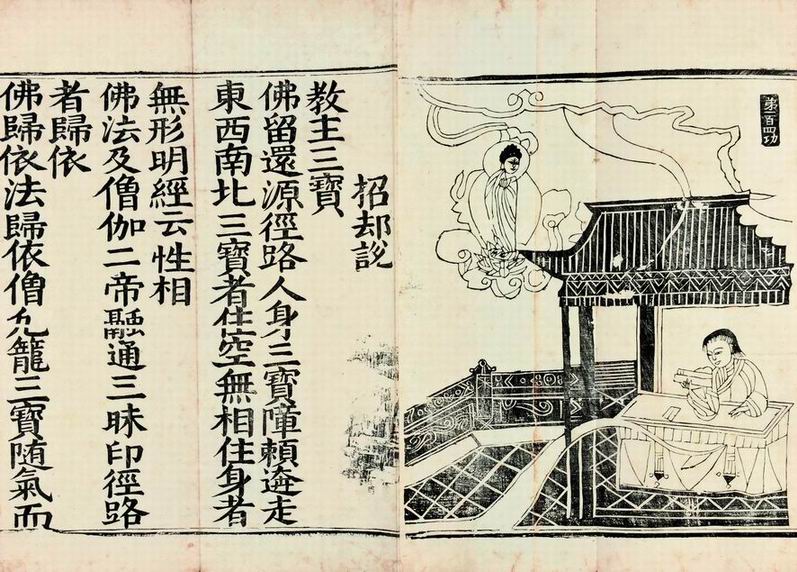 第一百四功
招却說
教主三寶
佛留還源徑路人身三寶障賴遊走
東西南北三寶者住空無相住身者
無形明經云性相
佛法及僧伽二帝融通三昧印徑路
者歸依
佛歸依法歸依僧九籠三寶随氣而